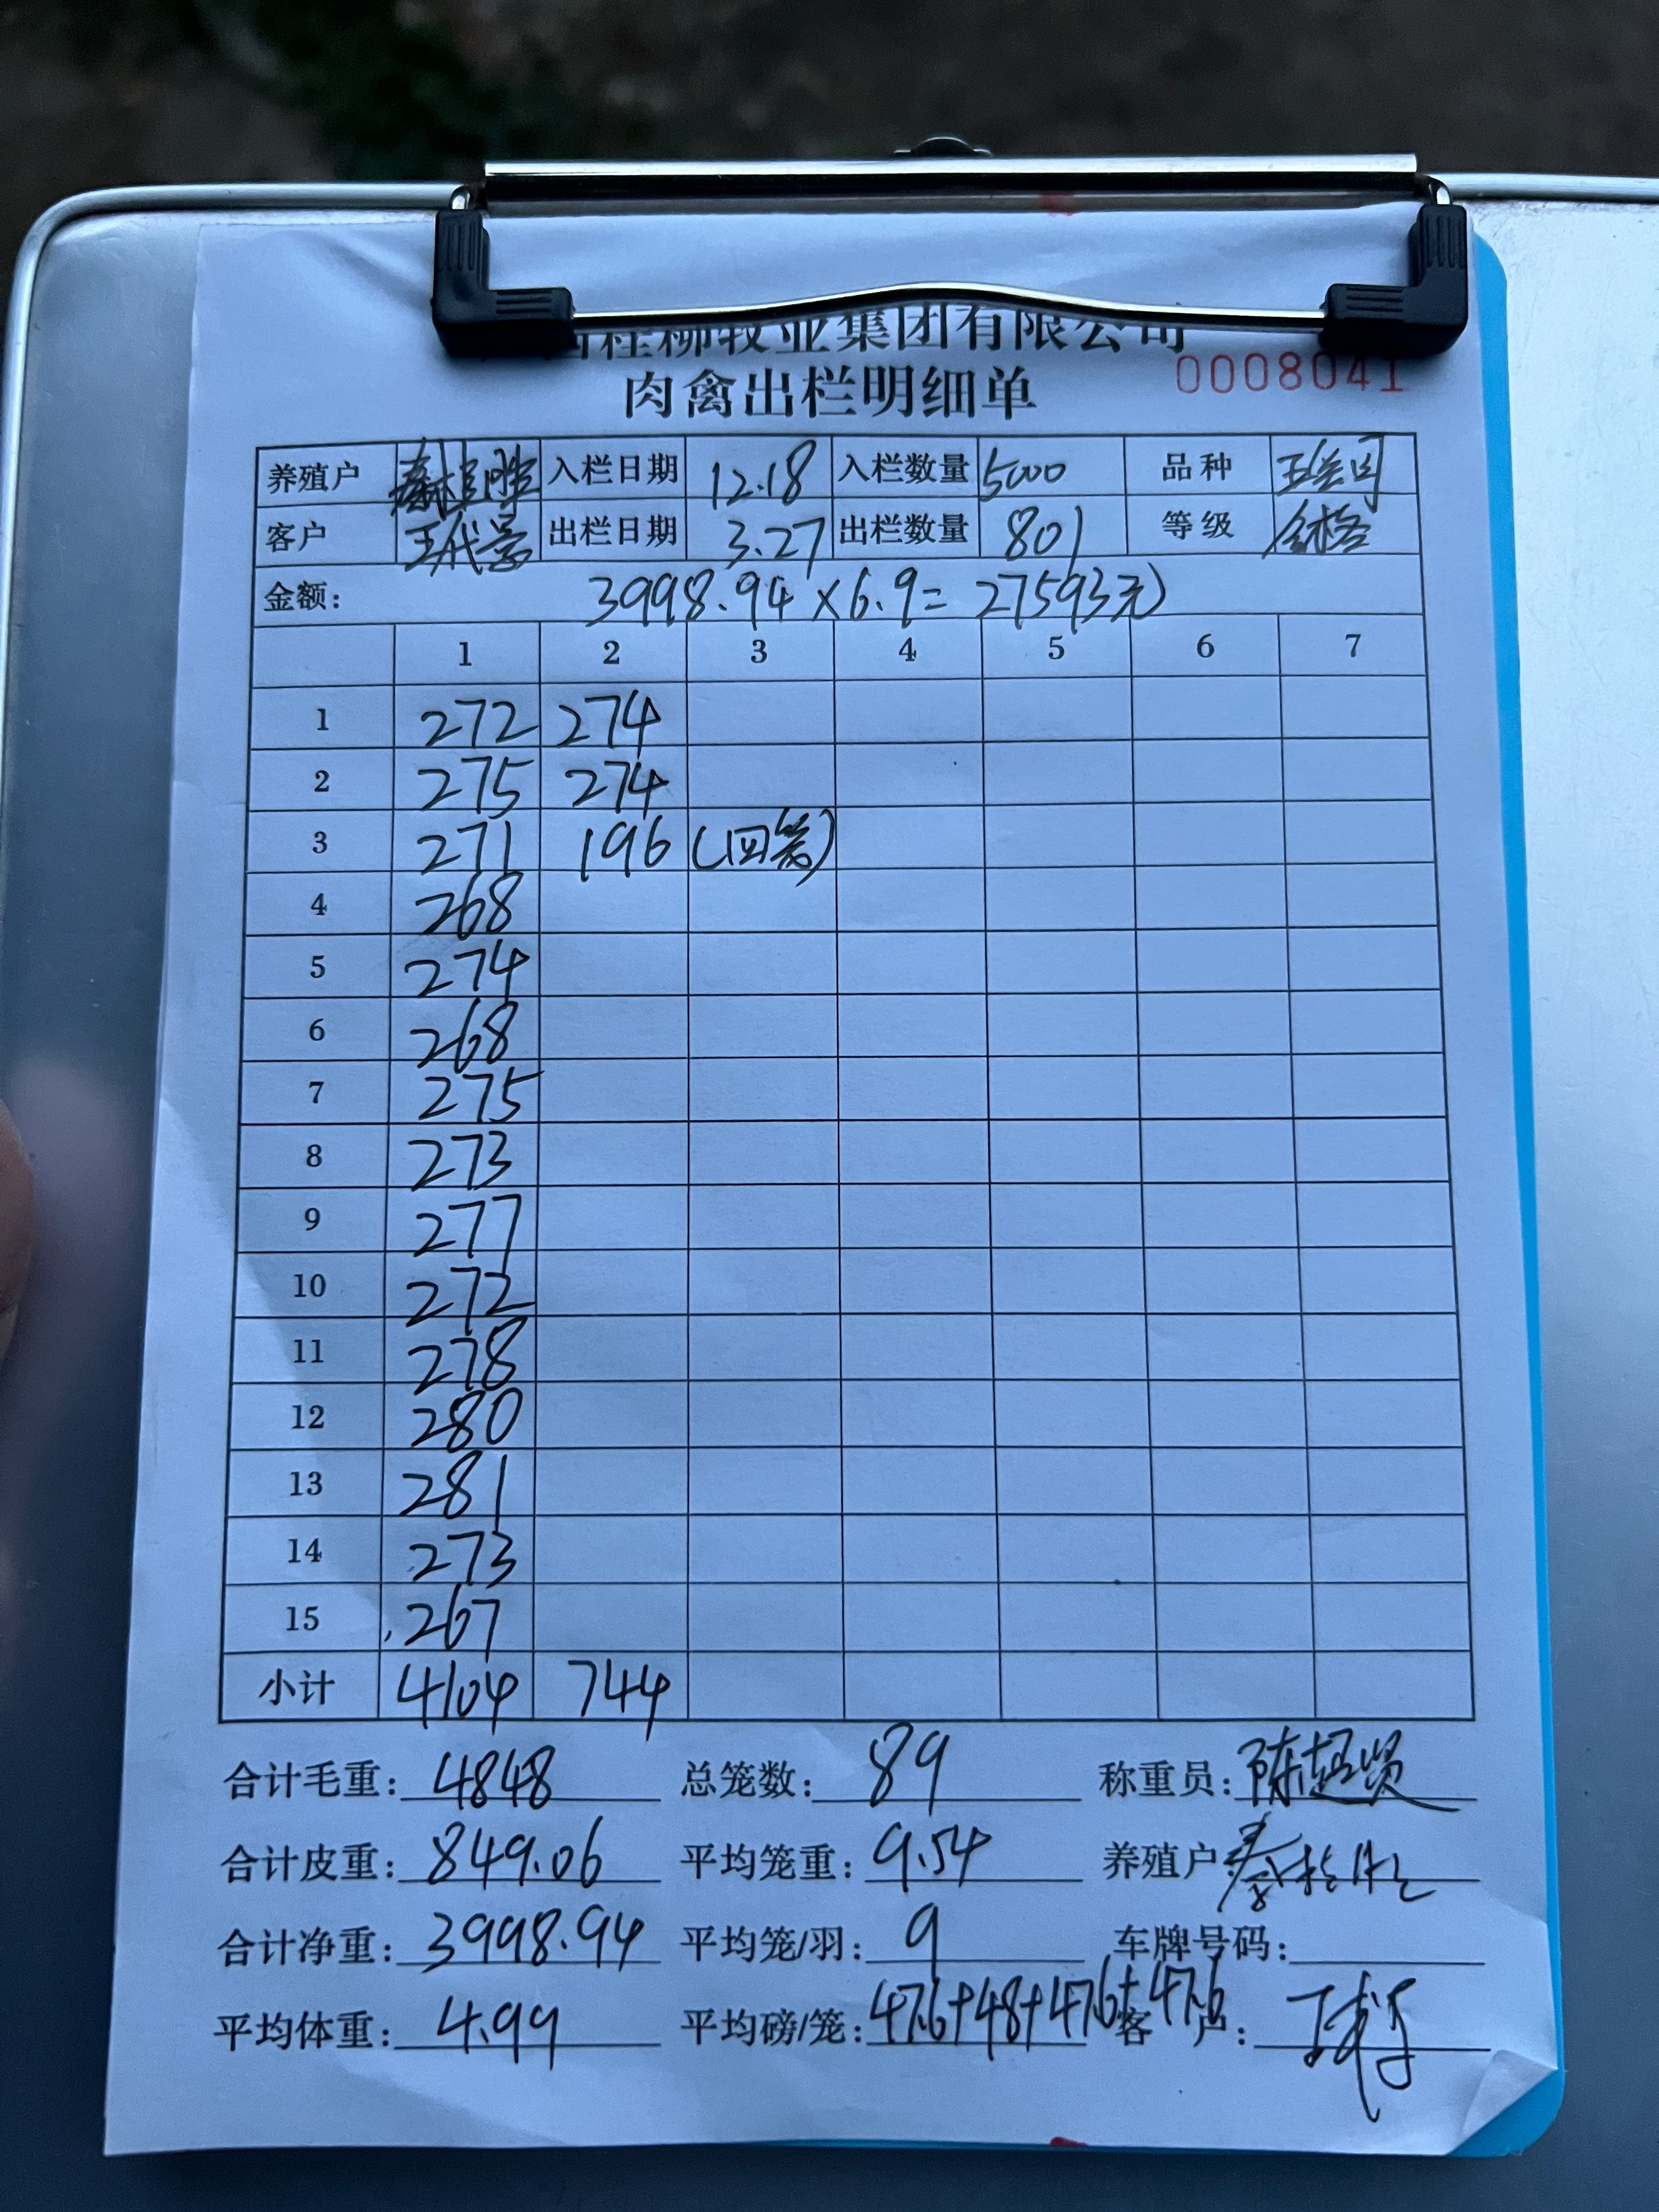 桂柳牧业集团有限公司
0008041
肉禽出栏明细单
养殖户 入栏日期 12.18 入栏数量 5000 品种
客户 王代 出栏日期 3.27 出栏数量 801 等级 合格
金额: 3998.94×6.9=27593元)
1 2 3 4 5 6 7
1 272 274
2 275 274
3 271 196 (四笼)
4 268
5 274
6 268
7 275
8 273
9 277
10 272
11 278
12 280
13 281
14 273
15 267
小计 4104 744
合计毛重: 4848 总笼数: 89 称重员: 陈超贤
合计皮重: 849.06 平均笼重: 9.54 养殖户 秦
合计净重: 3998.94 平均笼/羽: 9 车牌号码:
平均体重: 4.99 平均磅/笼: 47.6+48+47.6+47.6 客 户: